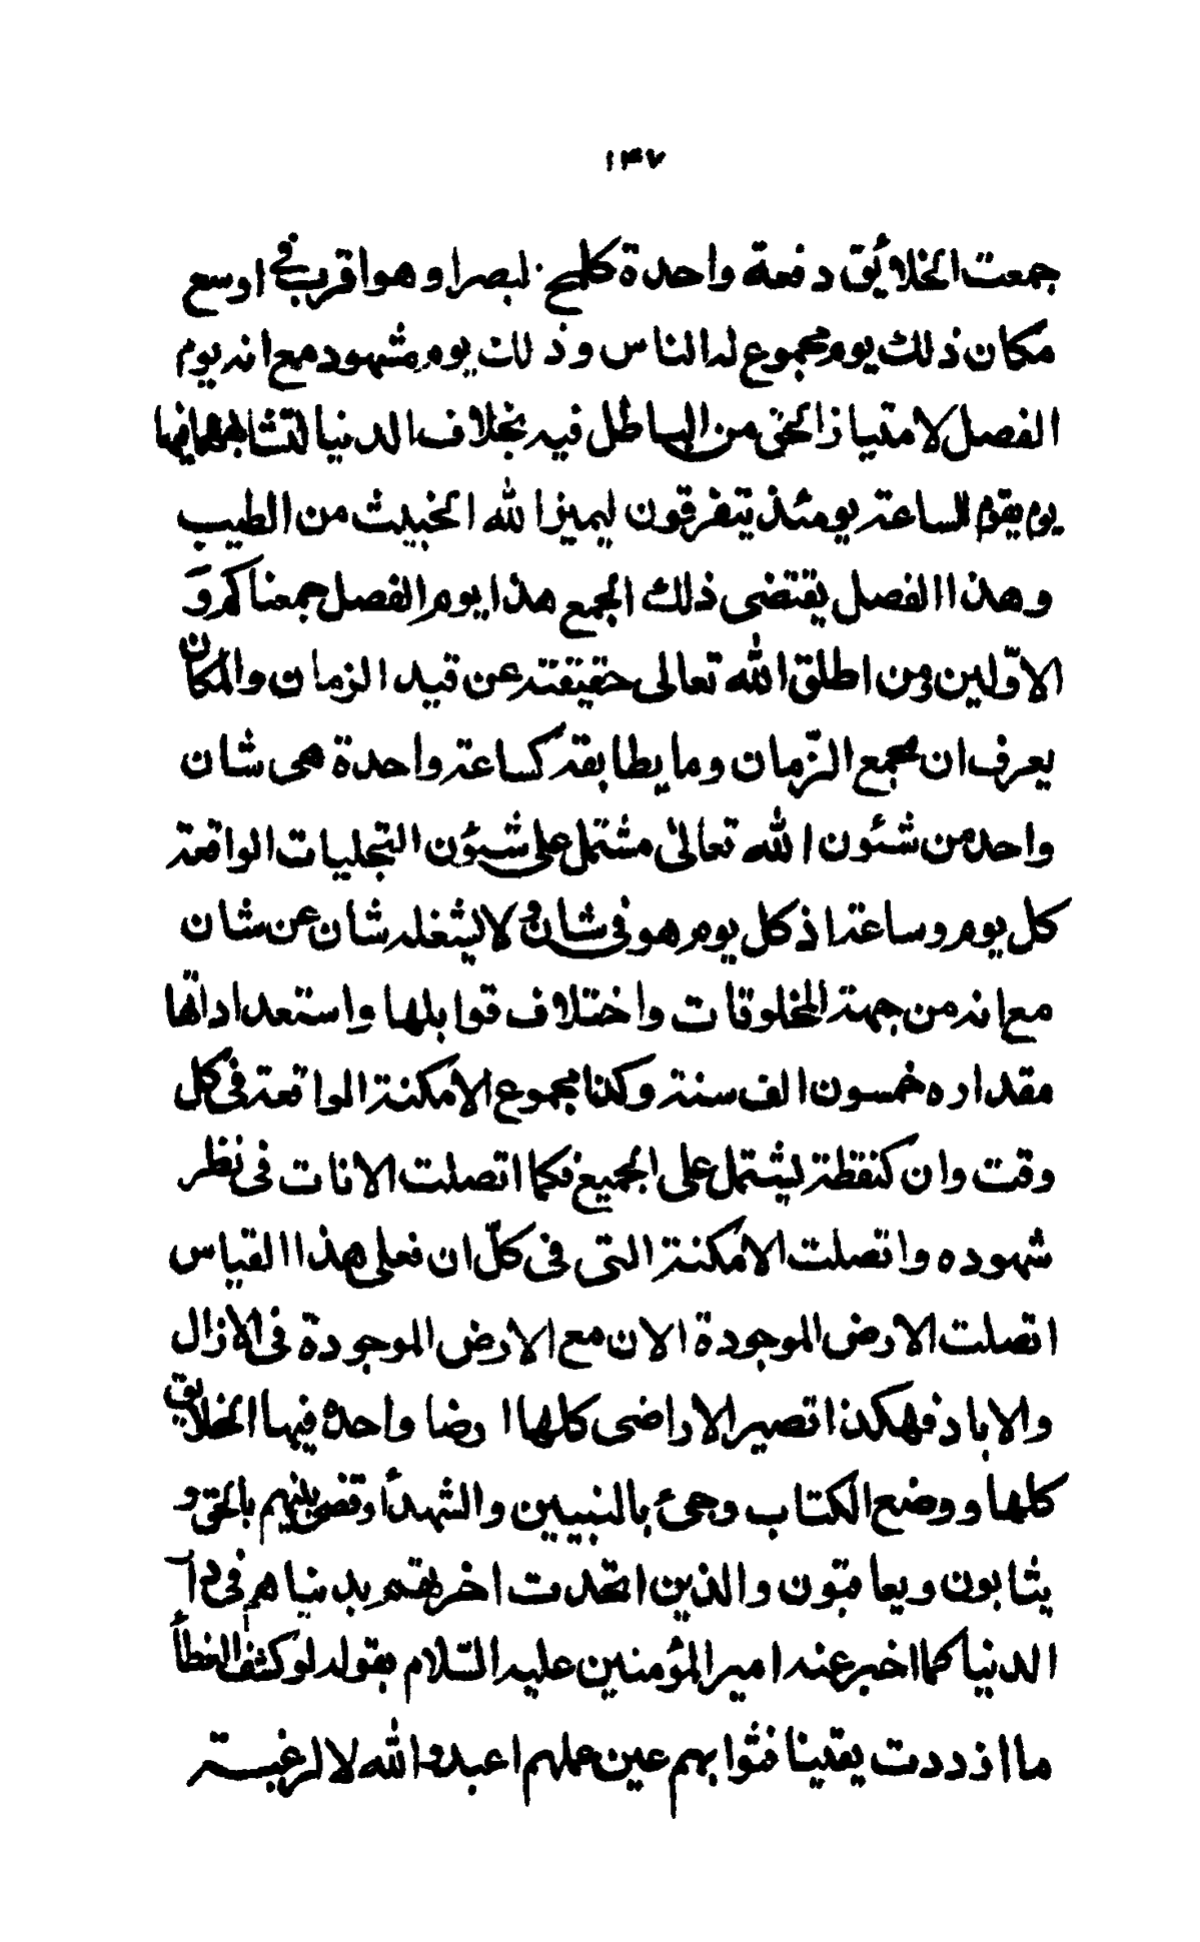 ۱۴۷
جمعت الخلائق دفعة واحدة كلمح البصر او هو اقرب في اوسع
مكان ذلك يوم مجموع له الناس وذلك يوم مشهود مع انه يوم
الفصل لامتياز الحق من الباطل فيه بخلاف الدنيا لتشابههما فيها
يوم يقوم الساعة يومئذ يتفرقون ليميز الله الخبيث من الطيب
وهذا الفصل يقتضى ذلك الجمع هذا يوم الفصل جمعناكم وَ
الاوّلين ومن اطلق الله تعالى حقيقته عن قيد الزمان والمكان
يعرف ان مجمع الزّمان وما يطابقه كساعة واحدة هى شان
واحد من شئون الله تعالى مشتمل على شئون التجليات الواقعة
كل يوم وساعة اذ كل يوم هو فى شان و لا يشغله شان عن شان
مع انه من جهة المخلوقات واختلاف قوابلها واستعداداتها
مقداره خمسون الف سنة وكذا مجموع الامكنة الواقعة فى كل
وقت وان كنقطة يشتمل على الجميع فكما اتصلت الانات فى نظر
شهوده واتصلت الامكنة التى فى كلّ ان فعلى هذا القياس
اتصلت الارض الموجودة الان مع الارض الموجودة فى الازال
والاباد فهكذا تصير الاراضى كلها ارضا واحدة فيها الخلايق
كلها ووضع الكتاب وجئ بالنبيين والشهدأ وقضى بينهم بالحق و
يثابون ويعاقبون والذين اتحدت اخرتهم بدنياهم فى دار
الدنيا كما اخبر عنه امير المؤمنين عليه السّلام بقوله لو كشف الغطأ
ما ازددت يقينا فثوابهم عين عملهم اعبدوا الله لا لرغبة